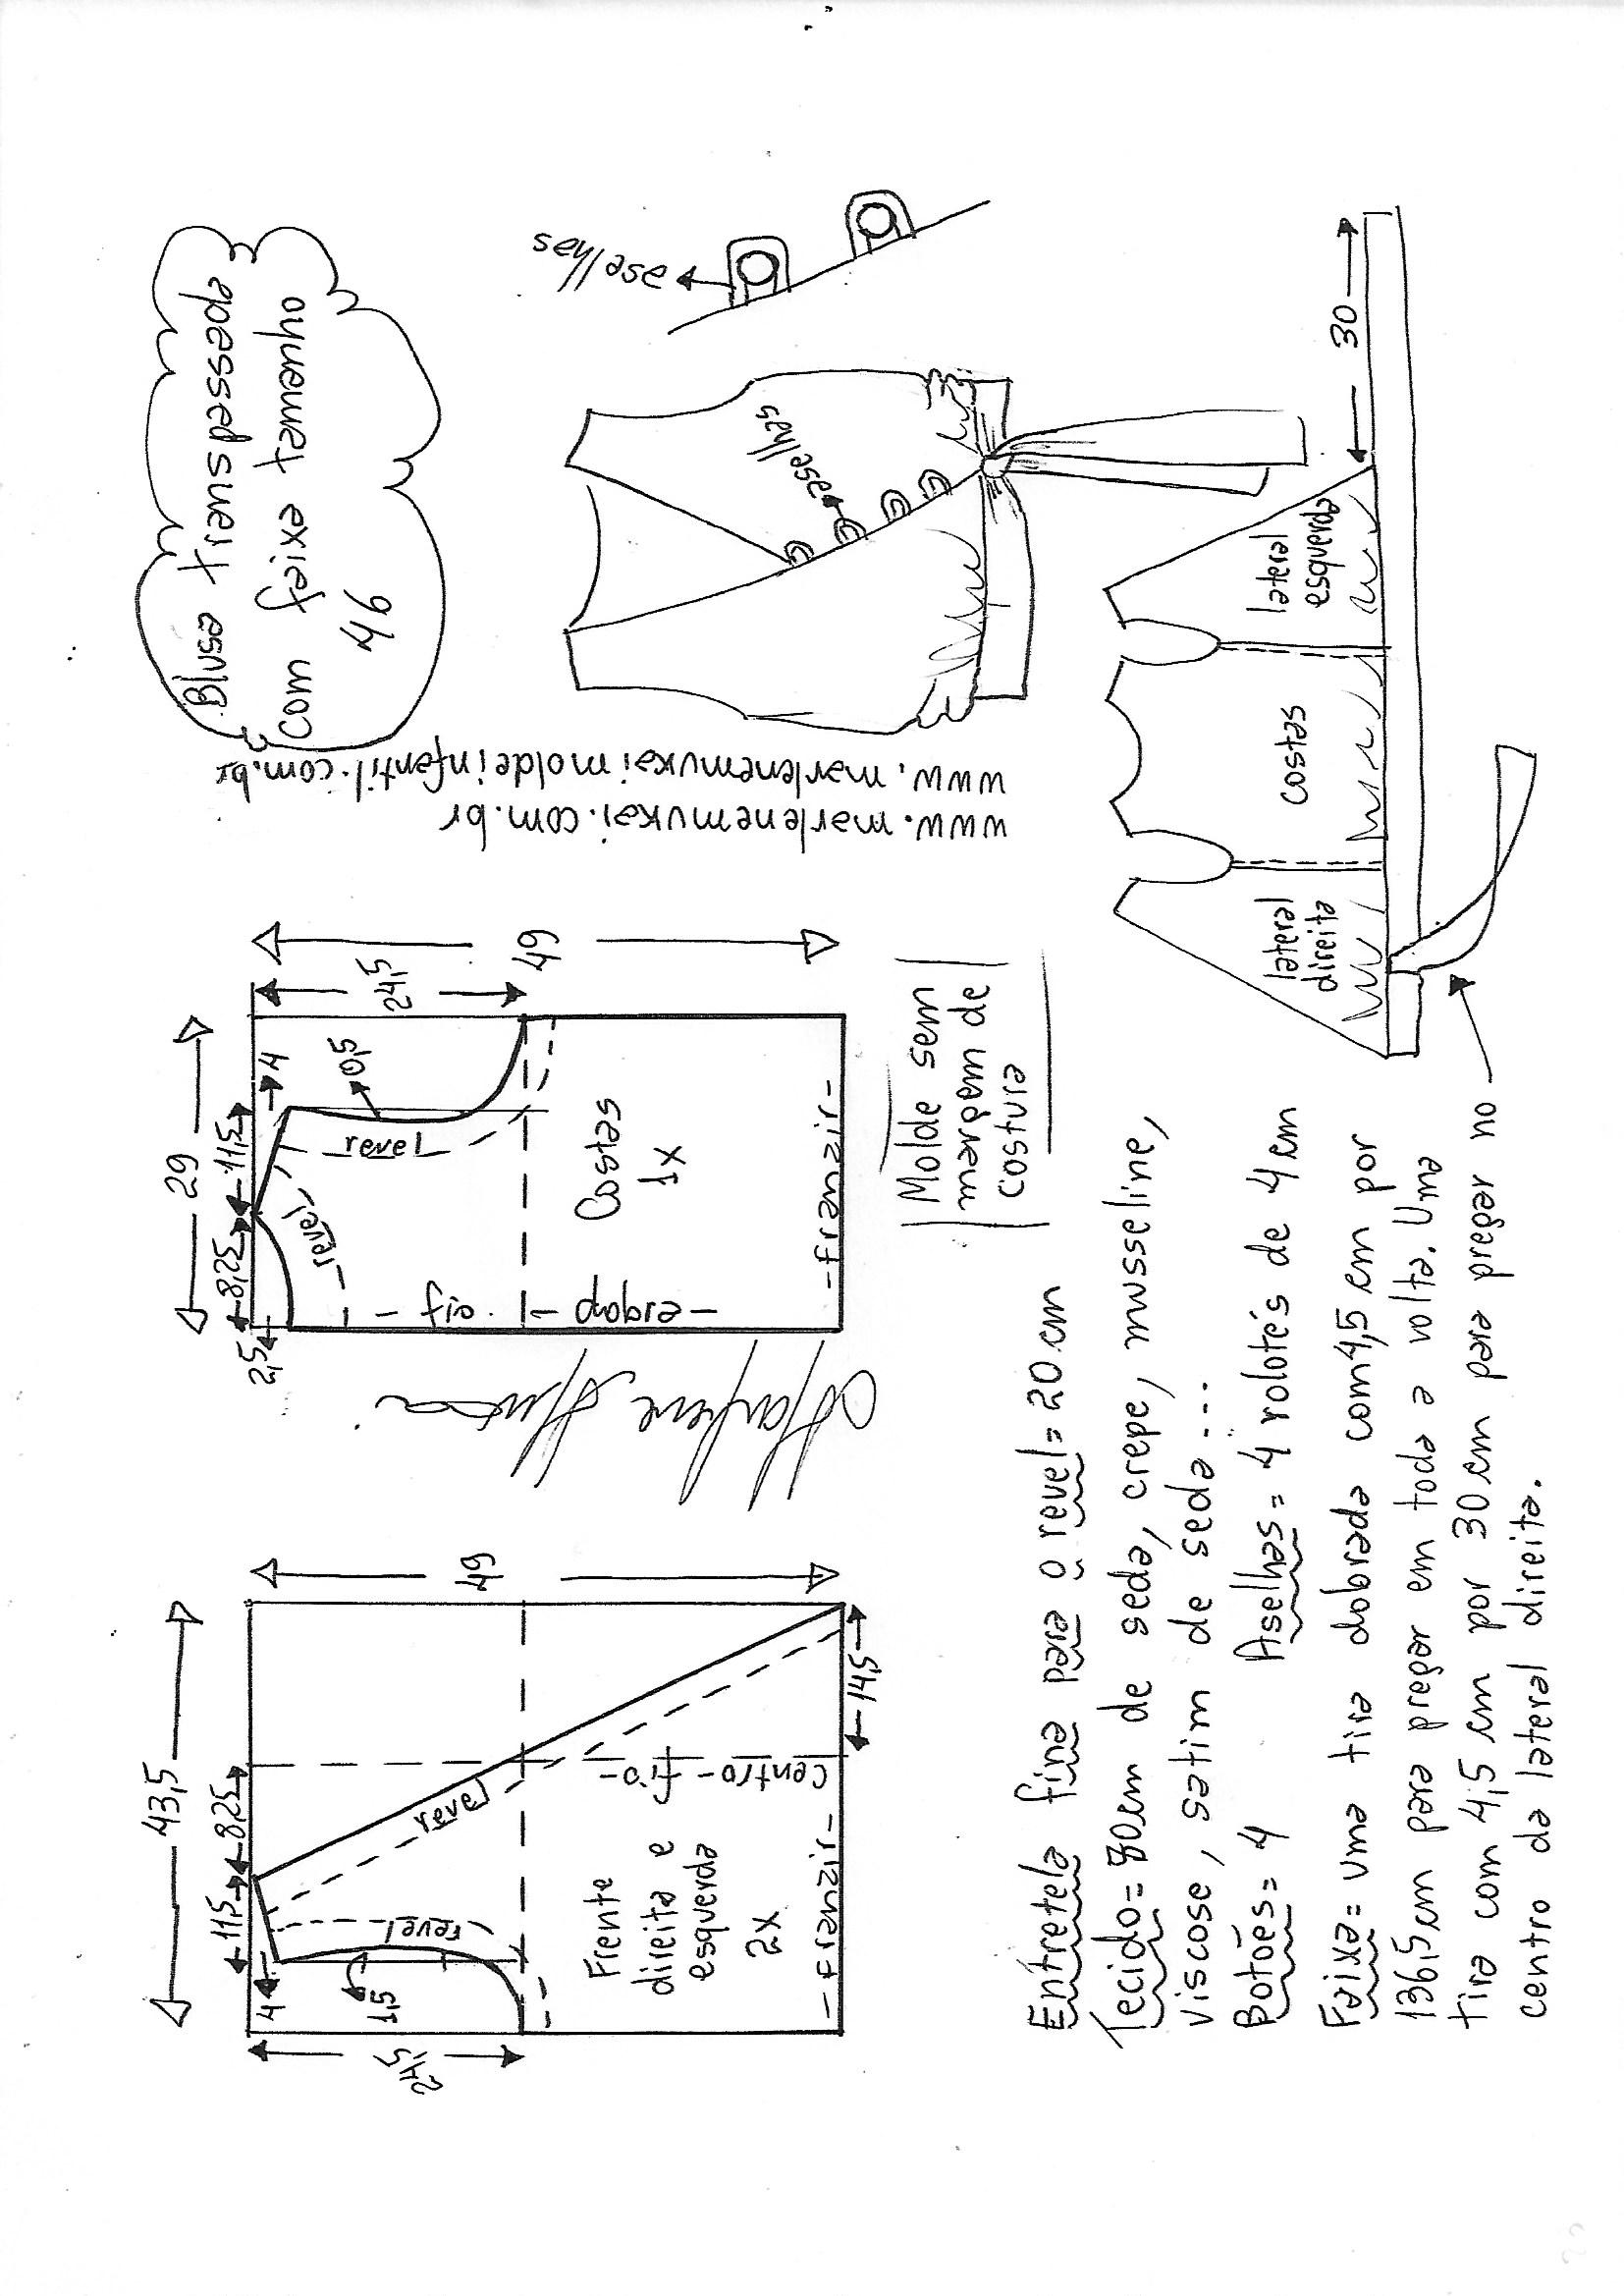 Blusa transpassada
com faixa tamanho
46
www.marlenemukai.com.br
www.marlenemukaimoldeinfantil.com.br
43,5
11,5
8,25
4
1,5
24,5
49
revel
revel
centro - fio -
Frente
direita e
esquerda
2x
- franzir -
14,5
29
8,25
11,5
2,5
4
0,5
24,5
49
revel
revel
- fio - dobra -
Costas
1x
- franzir -
Marlene Mukai
Molde sem
margem de
costura
aselhas
aselhas
lateral
direita
costas
lateral
esquerda
30
Entretela fina para o revel = 20 cm
Tecido = 80cm de seda, crepe, musseline,
viscose, satim de seda...
Botões = 4 Aselhas = 4 rolotés de 4 cm
Faixa = uma tira dobrada com 4,5 cm por
136,5 cm para pregar em toda a volta. Uma
tira com 4,5 cm por 30 cm para pregar no
centro da lateral direita.